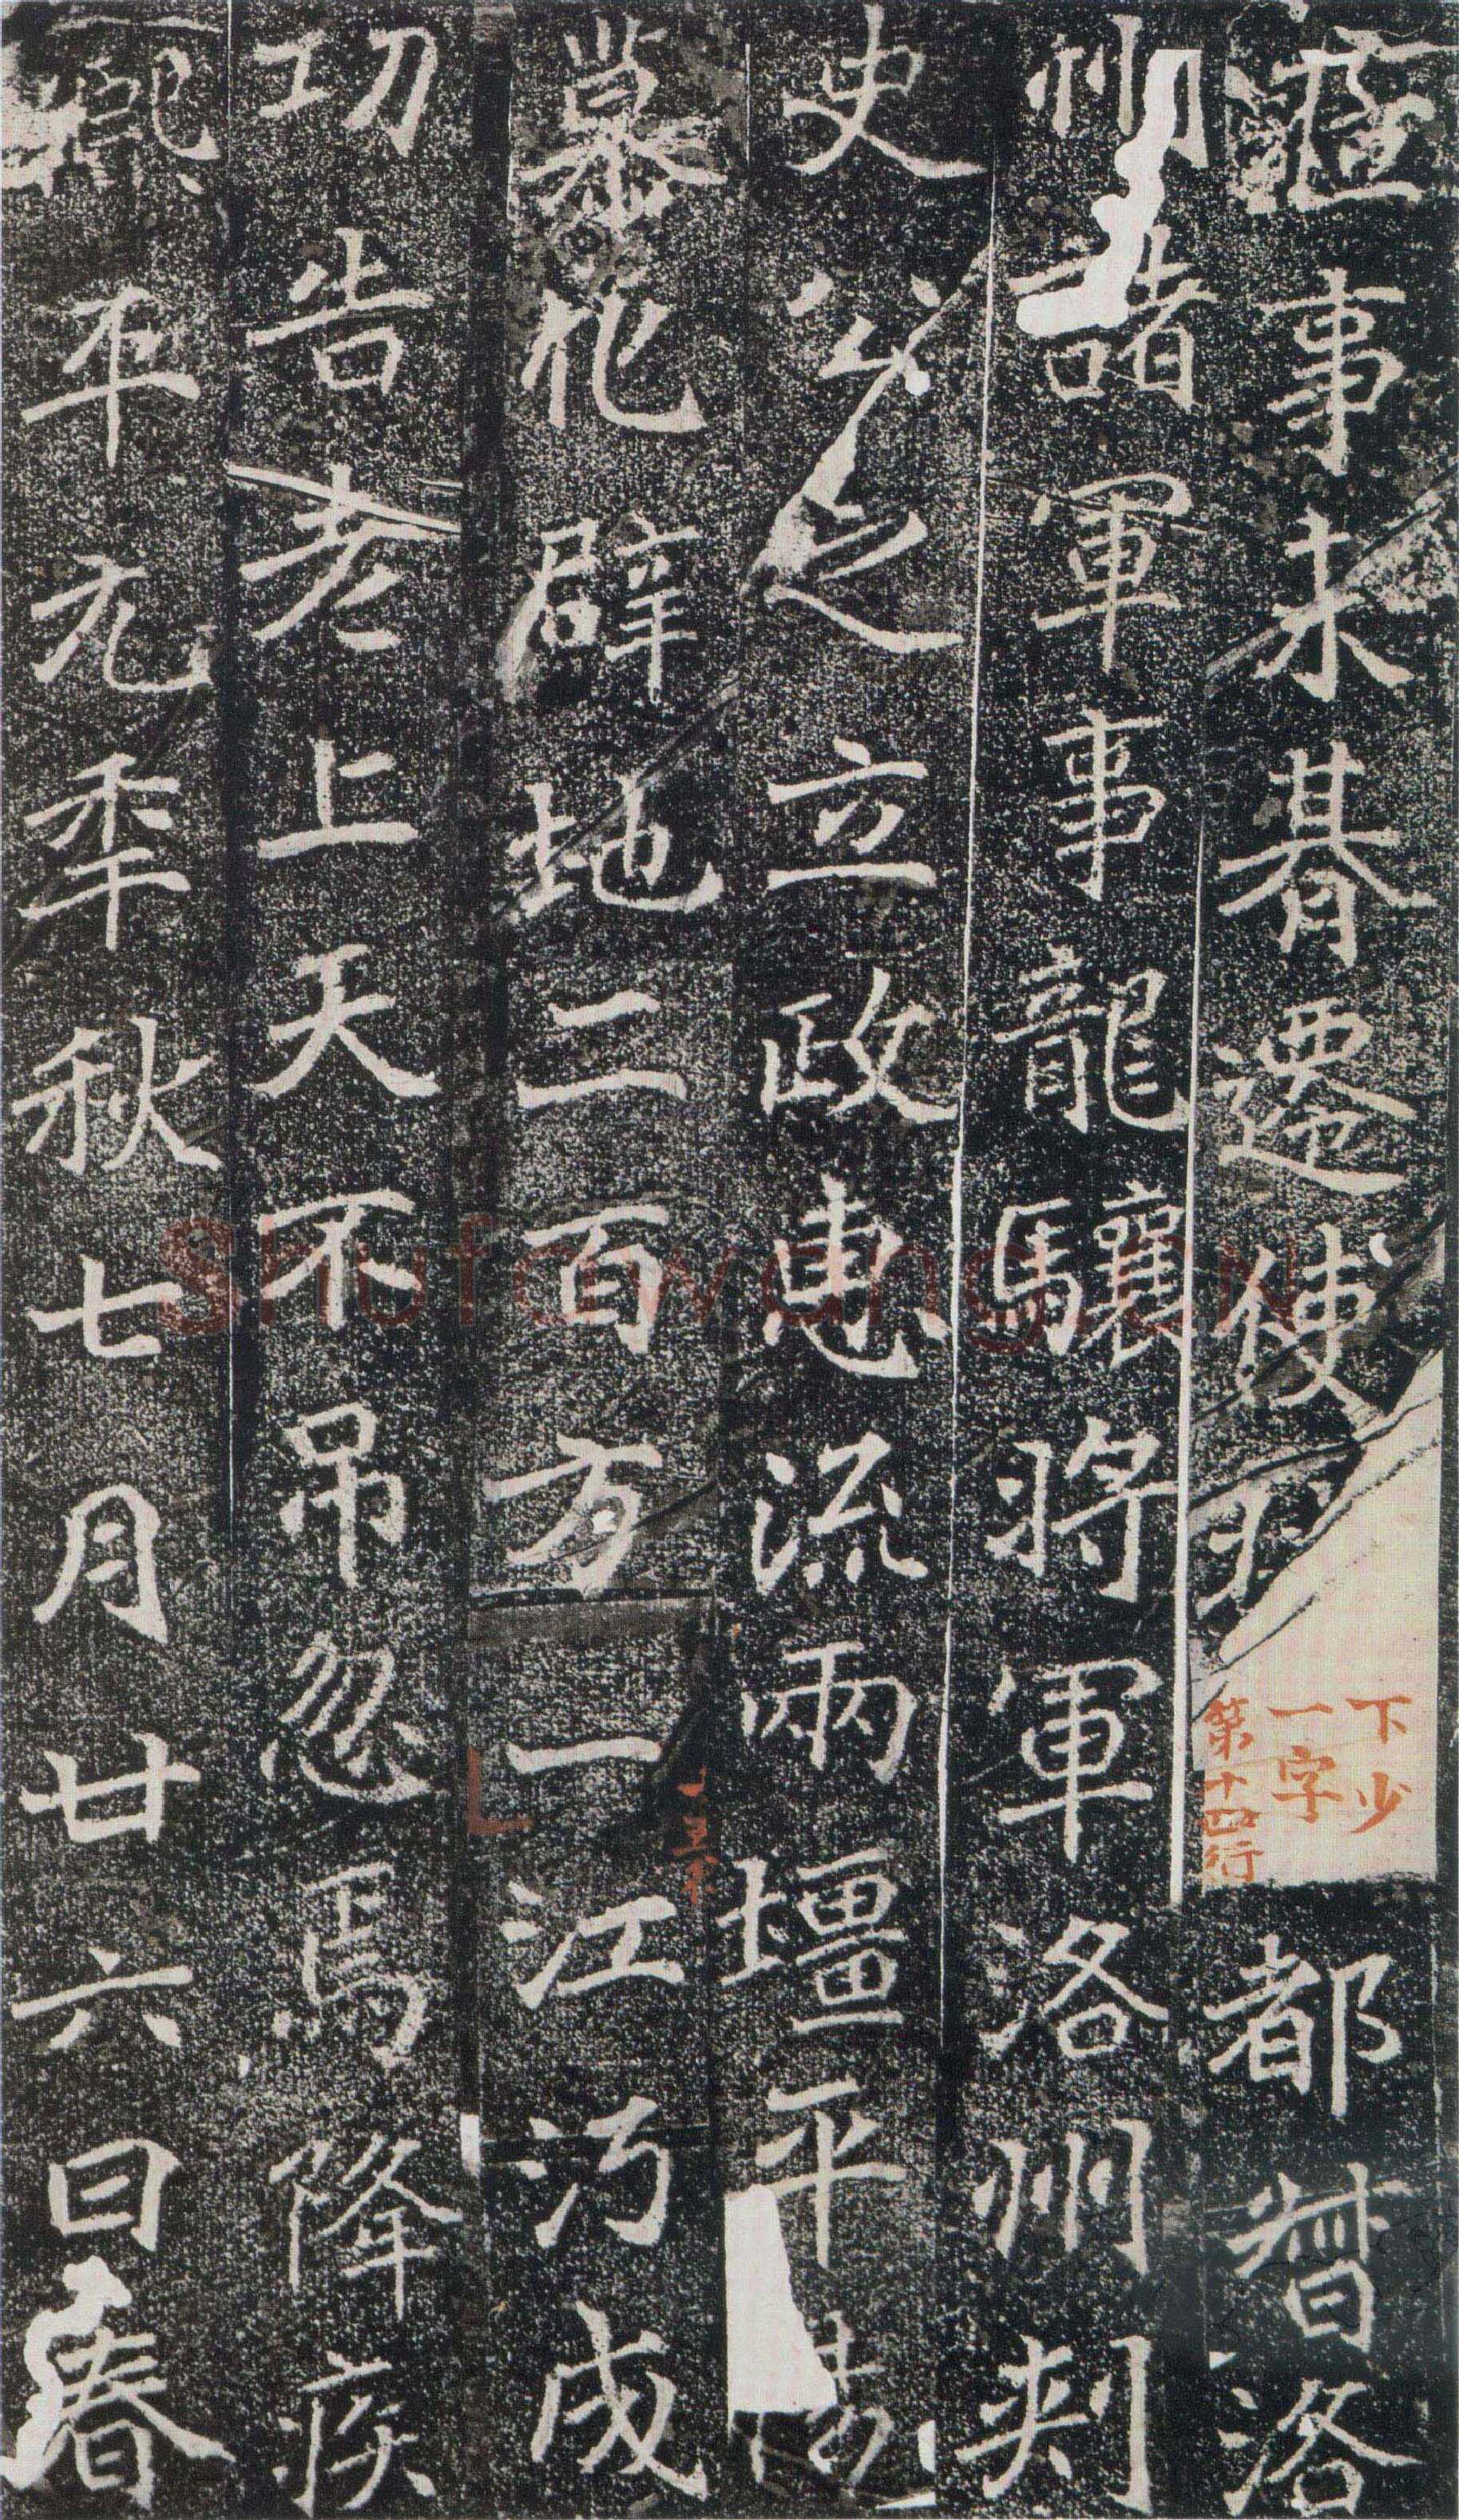 事未朞遷使都督洛
州諸軍事龍驤將軍洛州刾
史公之立政惠流兩壃平
慕化辟地二百方一江沔成
功告老上天不吊忽焉降疾
熙平元秊秋七月廿六日春
下少
一字
第十四行
Shufawang.CN